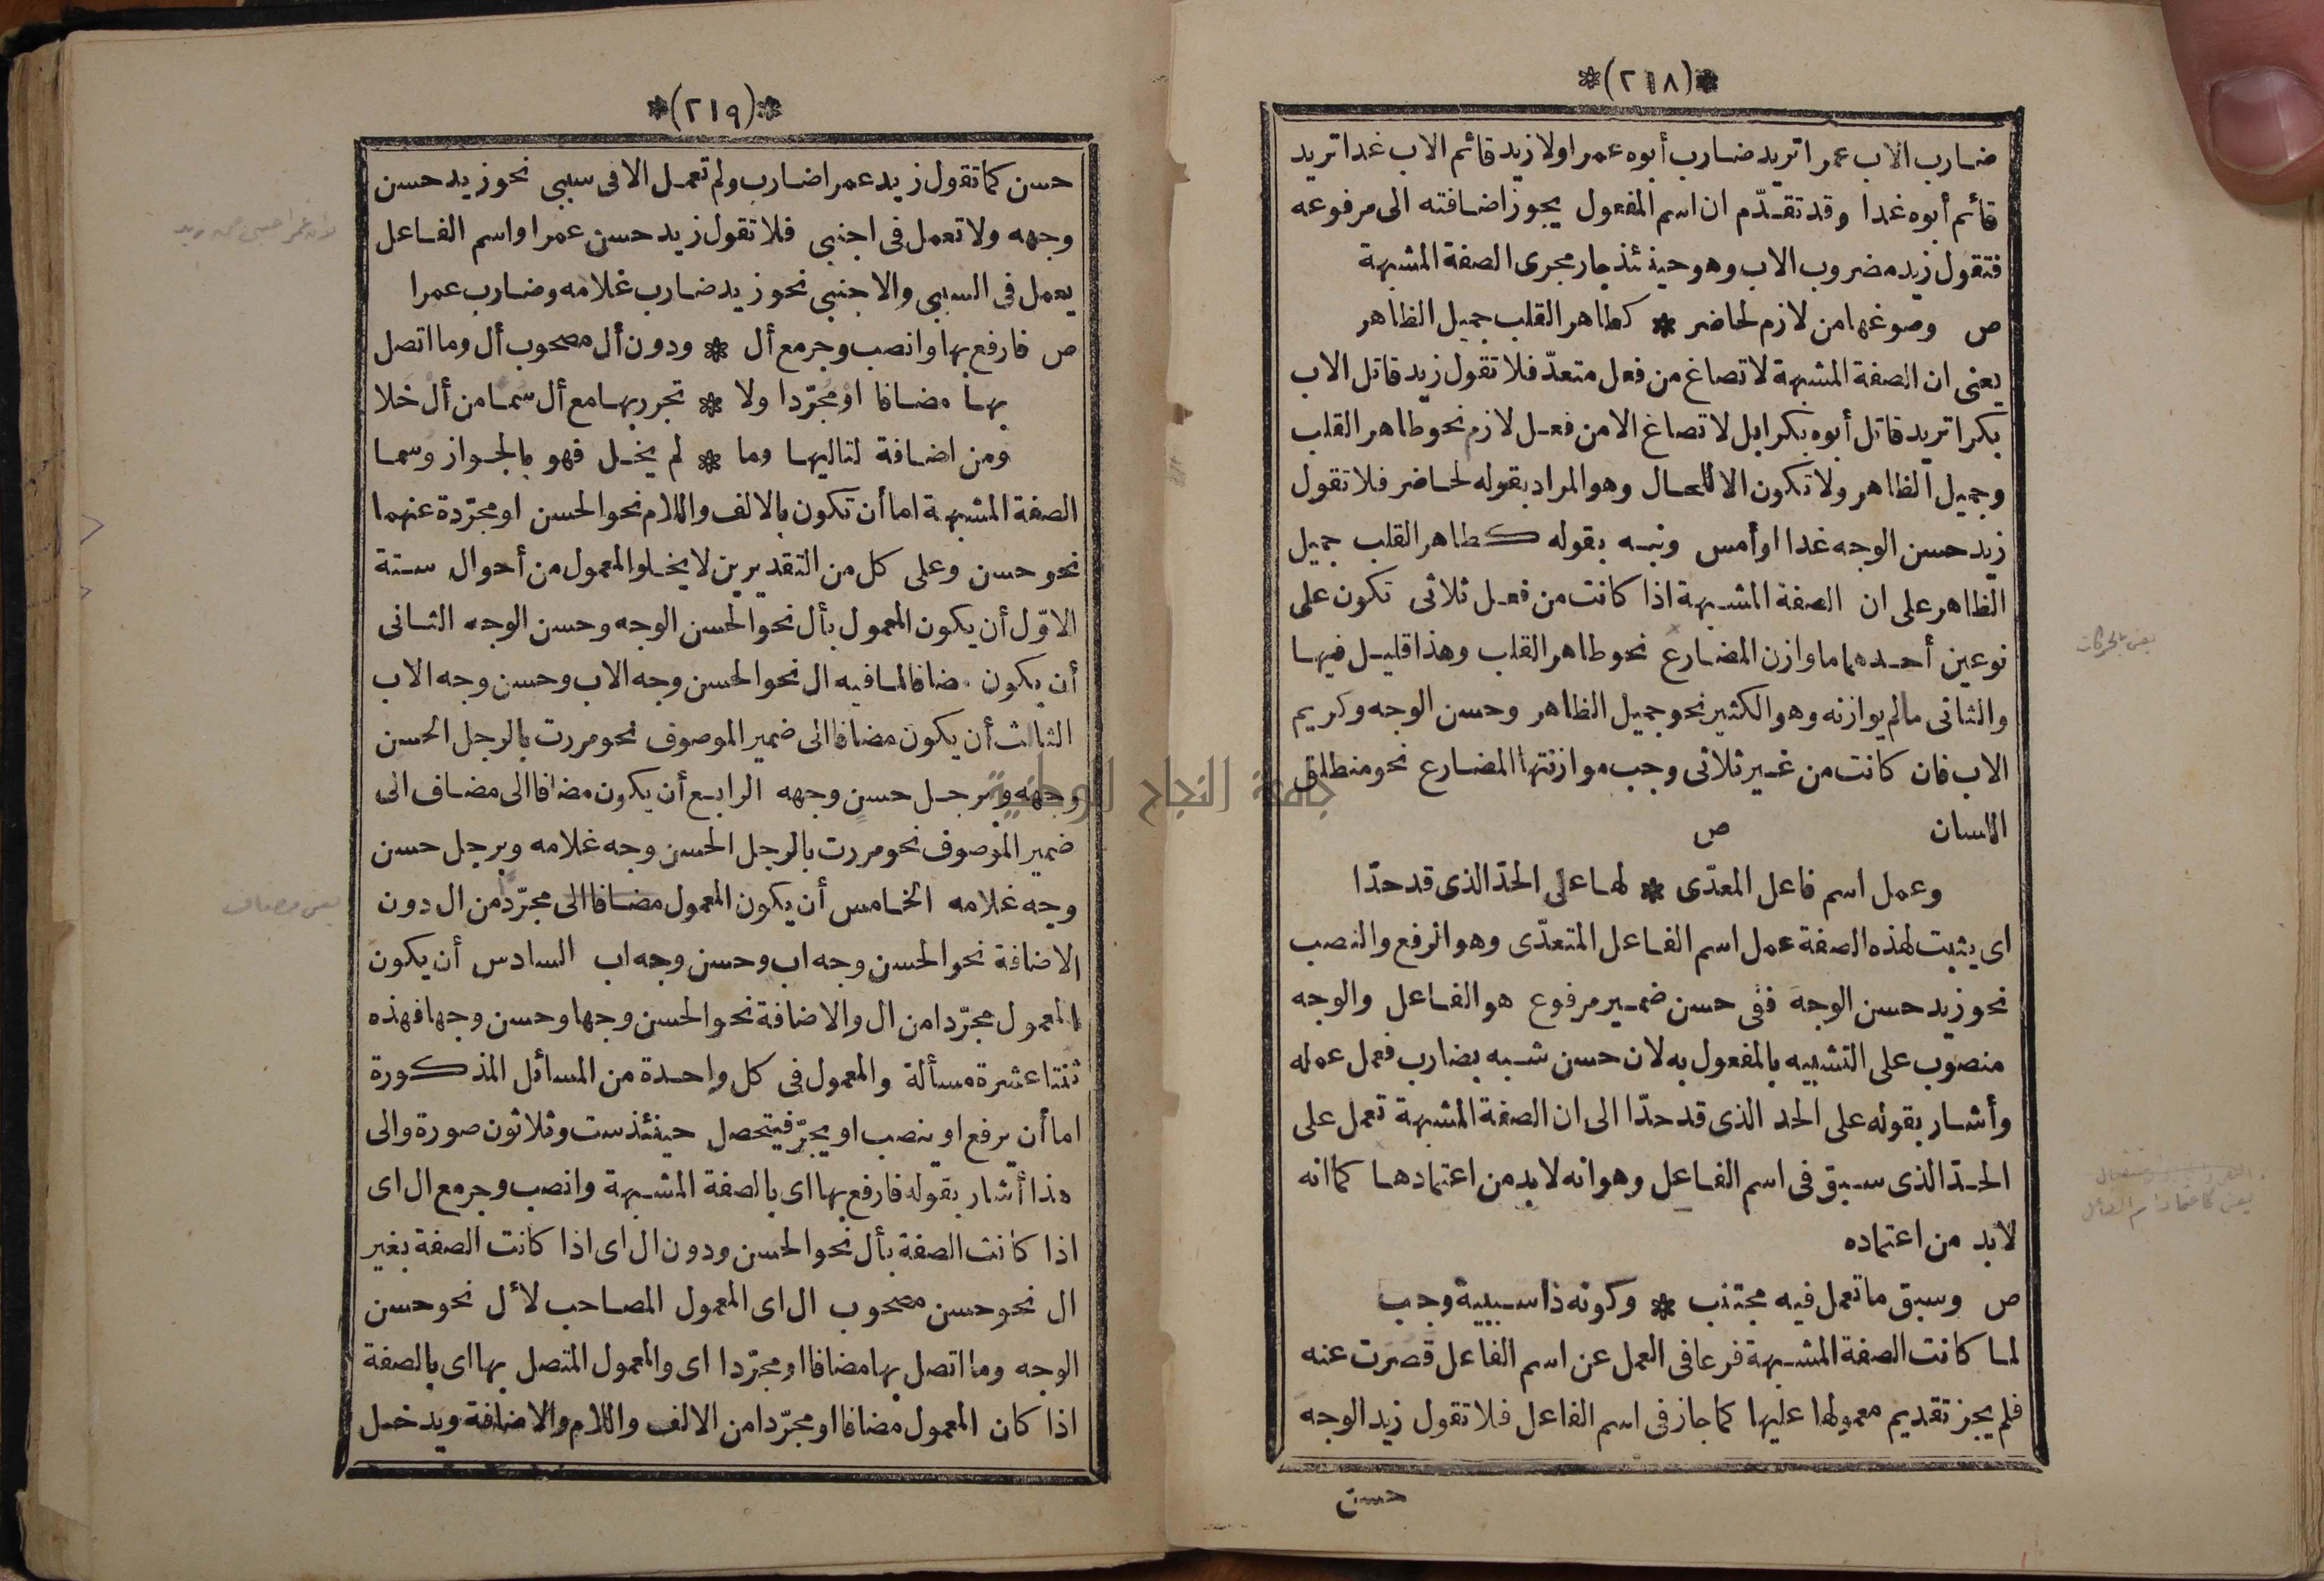 *(٢١٨)*
ضارب الاب عمرا تريد ضارب أبوه عمرا ولا زيد قائم الاب غدا تريد
قائم أبوه غدا وقد تقدّم ان اسم المفعول يجوز اضافته الى مرفوعه
فتقول زيد مضروب الاب وهو حينئذ جار مجرى الصفة المشبهة
ص وصوغها من لازم لحاضر * كطاهر القلب جميل الظاهر
يعنى ان الصفة المشبهة لا تصاغ من فعل متعدّ فلا تقول زيد قاتل الاب
بكرا تريد قاتل أبوه بكرا بل لا تصاغ الا من فعل لازم نحو طاهر القلب
وجميل الظاهر ولا تكون الا للحال وهو المراد بقوله لحاضر فلا تقول
زيد حسن الوجه غدا او أمس ونبه بقوله كطاهر القلب جميل
الظاهر على ان الصفة المشبهة اذا كانت من فعل ثلاثى تكون على
نوعين أحدهما ما وازن المضارع نحو طاهر القلب وهذا قليل فيها
والثانى ما لم يوازنه وهو الكثير نحو جميل الظاهر وحسن الوجه وكريم
الاب فان كانت من غير ثلاثى وجب موازنتها المضارع نحو منطلق
اللسان ص
وعمل اسم فاعل المعدّى * لها على الحدّ الذى قد حدّا
اى يثبت لهذه الصفة عمل اسم الفاعل المتعدّى وهو الرفع والنصب
نحو زيد حسن الوجه ففى حسن ضمير مرفوع هو الفاعل والوجه
منصوب على التشبيه بالمفعول به لان حسن شبه بضارب فعمل عمله
وأشار بقوله على الحد الذى قد حدّا الى ان الصفة المشبهة تعمل على
الحدّ الذى سبق فى اسم الفاعل وهو انه لابد من اعتمادها كما انه
لابد من اعتماده
ص وسبق ما تعمل فيه مجتنب * وكونه ذا سببية وجب
لما كانت الصفة المشبهة فرعا فى العمل عن اسم الفاعل قصرت عنه
فلم يجز تقديم معمولها عليها كما جاز فى اسم الفاعل فلا تقول زيد الوجه
حسن
يعنى بالحركات
*(٢١٩)*
حسن كما تقول زيد عمرا ضارب ولم تعمل الا فى سببى نحو زيد حسن
وجهه ولا تعمل فى اجنبى فلا تقول زيد حسن عمرا واسم الفاعل
يعمل فى السببى والاجنبى نحو زيد ضارب غلامه وضارب عمرا
ص فارفع بها وانصب وجر مع أل * ودون أل مصحوب أل وما اتصل
بها مضافا او مجرّدا ولا * تجرر بها مع أل سما من أل خلا
ومن اضافة لتاليها وما * لم يخل فهو بالجواز وسما
الصفة المشبهة اما أن تكون بالالف واللام نحو الحسن او مجرّدة عنهما
نحو حسن وعلى كل من التقديرين لا يخلو المعمول من أحوال ستة
الاوّل أن يكون المعمول بأل نحو الحسن الوجه وحسن الوجه الثانى
أن يكون مضافا لما فيه ال نحو الحسن وجه الاب وحسن وجه الاب
الثالث أن يكون مضافا الى ضمير الموصوف نحو مررت بالرجل الحسن
وجهه وبرجل حسن وجهه الرابع أن يكون مضافا الى مضاف الى
ضمير الموصوف نحو مررت بالرجل الحسن وجه غلامه وبرجل حسن
وجه غلامه الخامس أن يكون المعمول مضافا الى مجرّد من ال دون
الاضافة نحو الحسن وجه اب وحسن وجه اب السادس أن يكون
المعمول مجرّدا من ال والاضافة نحو الحسن وجها وحسن وجها فهذه
ثنتا عشرة مسألة والمعمول فى كل واحدة من المسائل المذكورة
اما أن يرفع او ينصب او يجرّ فيتحصل حينئذ ست وثلاثون صورة والى
هذا أشار بقوله فارفع بها اى بالصفة المشبهة وانصب وجر مع ال اى
اذا كانت الصفة بأل نحو الحسن ودون ال اى اذا كانت الصفة بغير
ال نحو حسن مصحوب ال اى المعمول المصاحب لأل نحو حسن
الوجه وما اتصل بها مضافا او مجرّدا اى والمعمول المتصل بها اى بالصفة
اذا كان المعمول مضافا او مجرّدا من الالف واللام والاضافة ويدخل
جامعة النجاح الوطنية